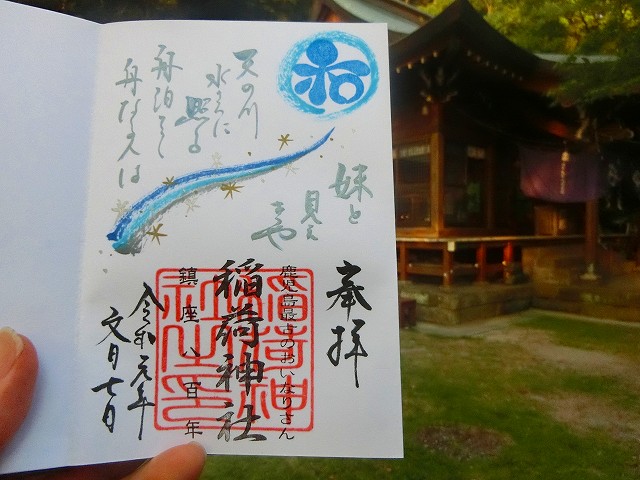 和
天の川
水さへに
照る
舟泊てて
舟なる人は
妹と
見え
きや
奉拝
鹿児島最古のおいなりさん
稲荷神社
鎮座八百年
令和元年
文月七日